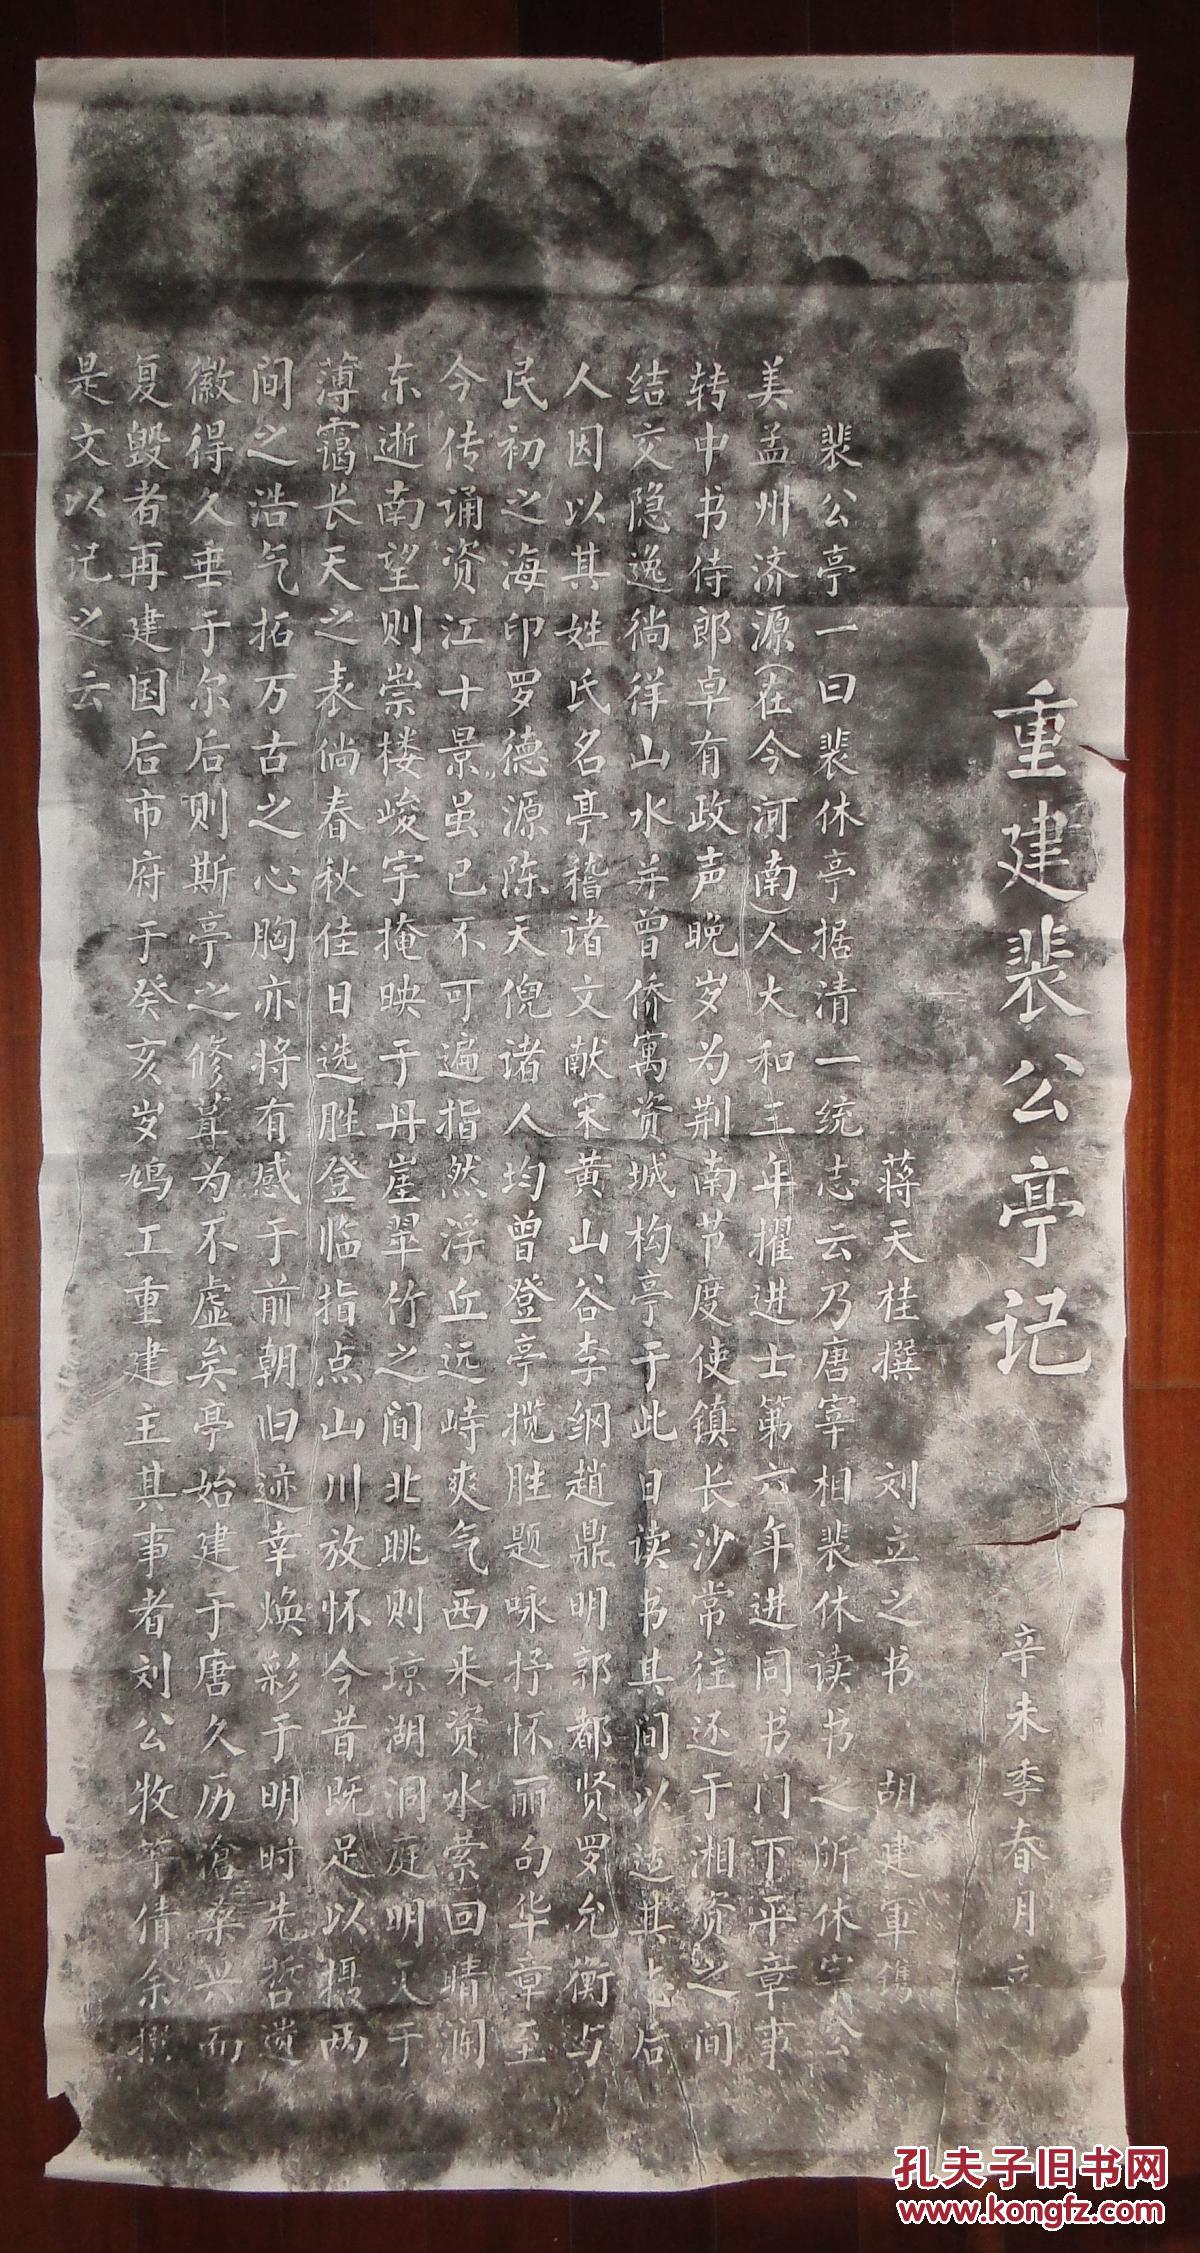 重建裴公亭记
辛未季春月立
蒋天桂撰 刘立之书 胡建军镌
裴公亭一曰裴休亭据清一统志云乃唐宰相裴休读书之所休字公
美孟州济源(在今河南)人大和三年擢进士第六年进同书门下平章事
转中书侍郎卓有政声晚岁为荆南节度使镇长沙常往还于湘资之间
结交隐逸徜徉山水并曾侨寓资城构亭于此日读书其间以适其志后
人因以其姓氏名亭稽诸文献宋黄山谷李纲趙鼎明郭都贤罗允衡与
民初之海印罗德源陈天倪诸人均曾登亭揽胜题咏抒怀丽句华章至
今传诵资江十景虽已不可遍指然浮丘远峙爽气西来资水萦回晴澜
东逝南望则崇楼峻宇掩映于丹崖翠竹之间北眺则琼湖洞庭明灭于
薄霭长天之表倘春秋佳日选胜登临指点山川放怀今昔既足以摄两
间之浩气拓万古之心胸亦将有感于前朝旧迹幸焕彩于明时先哲遗
徽得久垂于尔后则斯亭之修葺为不虚矣亭始建于唐久历滄桑兴而
复毁者再建国后市府于癸亥岁鸠工重建主其事者刘公牧等倩余撰
是文以记之云
孔夫子旧书网
www.kongfz.com